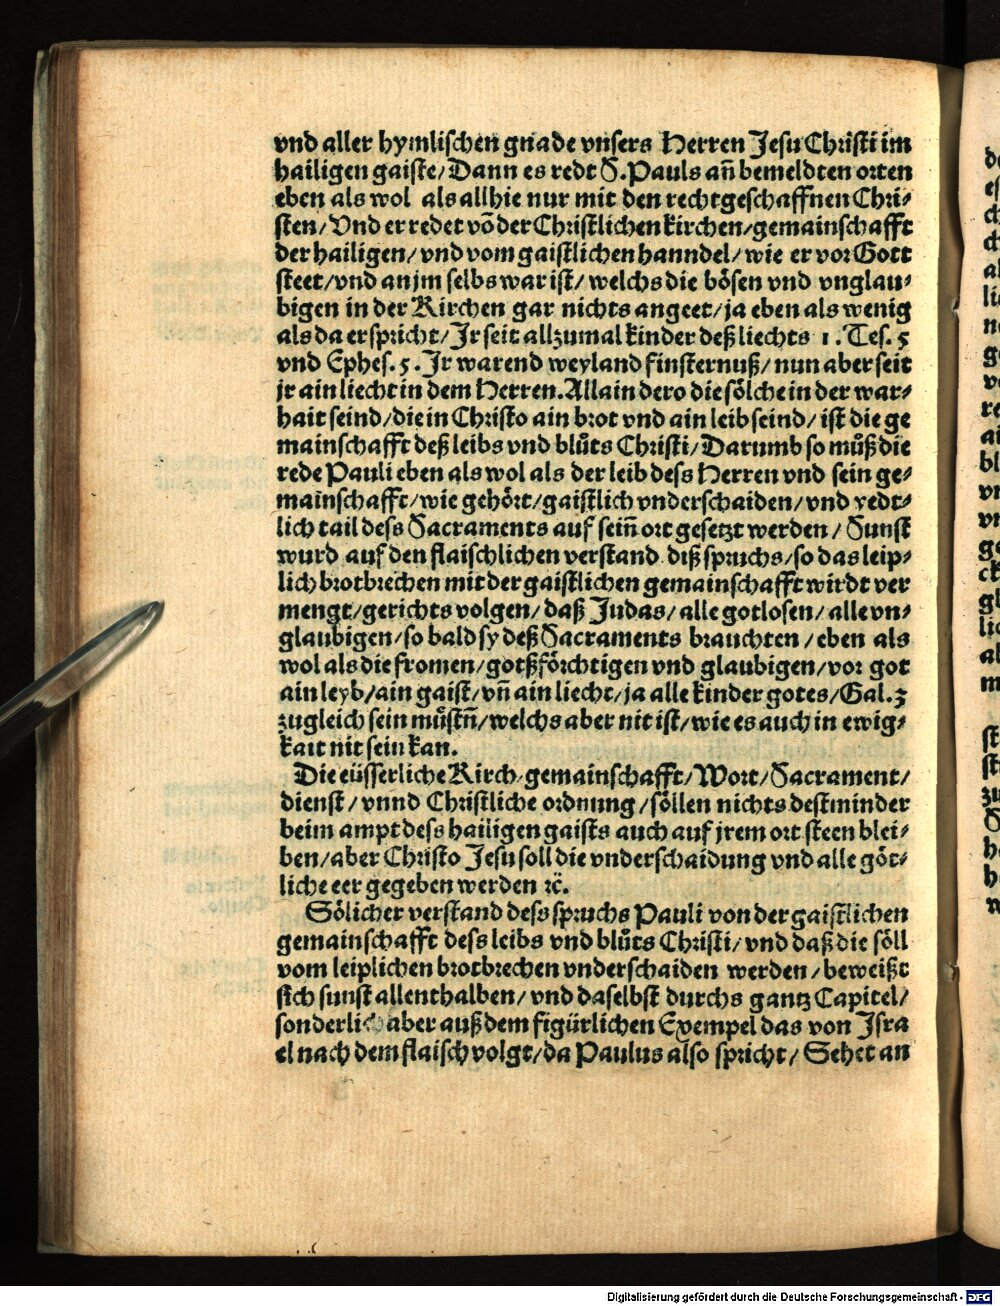 vnd aller hymlischen gnade vnsers Herren Jesu Christi im
hailigen gaiste/ Dann es redt S. Pauls an̄ bemeldten orten
eben als wol als allhie nur mit den rechtgeschaffnen Chri⸗
sten/ Vnd er redet vō der Christlichen kirchen/ gemainschafft
der hailigen/ vnd vom gaistlichen hanndel/ wie er vor Gott
steet/ vnd an jm selbs war ist/ welchs die bösen vnd vnglau⸗
bigen in der Kirchen gar nichts angeet/ ja eben als wenig
als da er spricht/ Jr seit allzumal kinder deß liechts 1. Tes. 5
vnd Ephes. 5. Jr warend weyland finsternuß/ nun aber seit
jr ain liecht in dem Herren. Allain dero die sölche in der war⸗
hait seind/ die in Christo ain brot vnd ain leib seind/ ist die ge
mainschafft deß leibs vnd blůts Christi/ Darumb so můß die
rede Pauli eben als wol als der leib dess Herren vnd sein ge⸗
mainschafft/ wie gehört/ gaistlich vnderschaiden/ vnd redt⸗
lich tail dess Sacraments auf sein̄ ort gesetzt werden/ Sunst
wurd auf den flaischlichen verstand diß spruchs/ so das leip⸗
lich brotbrechen mit der gaistlichen gemainschafft wirdt ver
mengt/ gerichts volgen/ daß Judas/ alle gotlosen/ alle vn⸗
glaubigen/ so bald sy deß Sacraments brauchten/ eben als
wol als die fromen/ gotßförchtigen vnd glaubigen/ vor got
ain leyb/ ain gaist/ vn̄ ain liecht/ ja alle kinder gotes/ Gal. 3
zugleich sein můstn̄/ welchs aber nit ist/ wie es auch in ewig⸗
kait nit sein kan.
Die eüsserliche Kirch gemainschafft/ Wort/ Sacrament/
dienst/ vnnd Christliche ordnung/ söllen nichts destminder
beim ampt dess hailigen gaists auch auf jrem ort steen blei⸗
ben/ aber Christo Jesu soll die vnderschaidung vnd alle göt⸗
liche eer gegeben werden ꝛc̄.
Sölicher verstand dess spruchs Pauli von der gaistlichen
gemainschafft dess leibs vnd blůts Christi/ vnd daß die söll
vom leiplichen brotbrechen vnderschaiden werden/ beweißt
sich sunst allenthalben/ vnd daselbst durchs gantz Capitel/
sonderlich aber auß dem figürlichen Exempel das von Jsra
el nach dem flaisch volgt/ da Paulus also spricht/ Sehet an
Digitalisierung gefördert durch die Deutsche Forschungsgemeinschaft - DFG